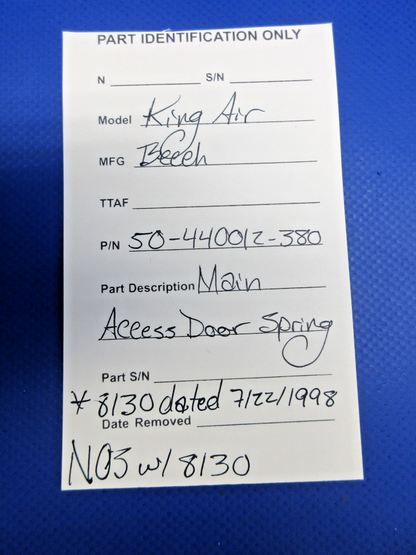 PART IDENTIFICATION ONLY
N ____________ S/N ____________
Model King Air
MFG Beech
TTAF ____________
P/N 50-440012-380
Part Description Main
Access Door Spring
Part S/N ____________
* 8130 dated 7/22/1998
Date Removed ____________
NOS w/ 8130